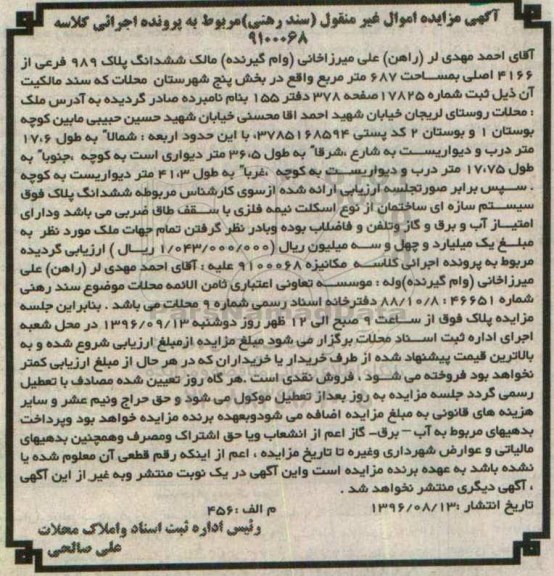 آگهی مزایده اموال غیر منقول (سند رهنی)مربوط به پرونده اجرائی کلاسه
۹۱۰۰۰۶۸
آقای احمد مهدی لر (راهن) علی میرزاخانی (وام گیرنده) مالک ششدانگ پلاک ۹۸۹ فرعی از
۴۱۶۶ اصلی بمساحت ۶۸۷ متر مربع واقع در بخش پنج شهرستان محلات که سند مالکیت
آن ذیل ثبت شماره ۱۷۸۲۵صفحه ۳۷۸ دفتر ۱۵۵ بنام نامبرده صادر گردیده به آدرس ملک
: محلات روستای لریجان خیابان شهید احمد اقا محسنی خیابان شهید حسین حبیبی مابین کوچه
بوستان ۱ و بوستان ۲ کد پستی ۳۷۸۵۱۶۸۵۹۴، با این حدود اربعه : شمالاً به طول ۱۷،۶
متر درب و دیواریست به شارع ،شرقاً به طول ۳۶،۵ متر دیواری است به کوچه ،جنوباً به
طول ۱۷،۷۵ متر درب و دیواریست به کوچه ،غرباً به طول ۴۱،۳ متر دیواریست به کوچه
. سپس برابر صورتجلسه ارزیابی ارائه شده ازسوی کارشناس مربوطه ششدانگ پلاک فوق
سیستم سازه ای ساختمان از نوع اسکلت نیمه فلزی با سقف طاق ضربی می باشد ودارای
امتیاز آب و برق و گاز وتلفن و فاضلاب بوده وبادر نظر گرفتن تمام جهات ملک مورد نظر به
مبلغ یک میلیارد و چهل و سه میلیون ریال (۱/۰۴۳/۰۰۰/۰۰۰ ریال ) ارزیابی گردیده
مربوط به پرونده اجرائی کلاسه مکانیزه ۹۱۰۰۰۶۸ علیه : آقای احمد مهدی لر (راهن) علی
میرزاخانی (وام گیرنده)وله : موسسه تعاونی اعتباری ثامن الائمه محلات موضوع سند رهنی
شماره ۴۶۶۵۱ : ۸۸/۱۰/۸ دفترخانه اسناد رسمی شماره ۹ محلات می باشد . بنابراین جلسه
مزایده پلاک فوق از ساعت ۹ صبح الی ۱۲ ظهر روز دوشنبه ۱۳۹۶/۰۹/۱۳ در محل شعبه
اجرای اداره ثبت اسناد محلات برگزار می شود مبلغ مزایده ازمبلغ ارزیابی شروع شده و به
بالاترین قیمت پیشنهاد شده از طرف خریدار یا خریداران که در هر حال از مبلغ ارزیابی کمتر
نخواهد بود فروخته می شود ، فروش نقدی است .هر گاه روز تعیین شده مصادف با تعطیل
رسمی گردد جلسه مزایده به روز بعداز تعطیل موکول می شود و حق حراج ونیم عشر و سایر
هزینه های قانونی به مبلغ مزایده اضافه می شودوبعهده برنده مزایده خواهد بود وپرداخت
بدهیهای مربوط به آب – برق- گاز اعم از انشعاب ویا حق اشتراک ومصرف وهمچنین بدهیهای
مالیاتی و عوارض شهرداری وغیره تا تاریخ مزایده ، اعم از اینکه رقم قطعی آن معلوم شده یا
نشده باشد به عهده برنده مزایده است واین آگهی در یک نوبت منتشر وبه غیر از این آگهی
، آگهی دیگری منتشر نخواهد شد .
تاریخ انتشار :۱۳۹۶/۰۸/۱۳ م الف :۴۵۶
رئیس اداره ثبت اسناد واملاک محلات
علی صالحی